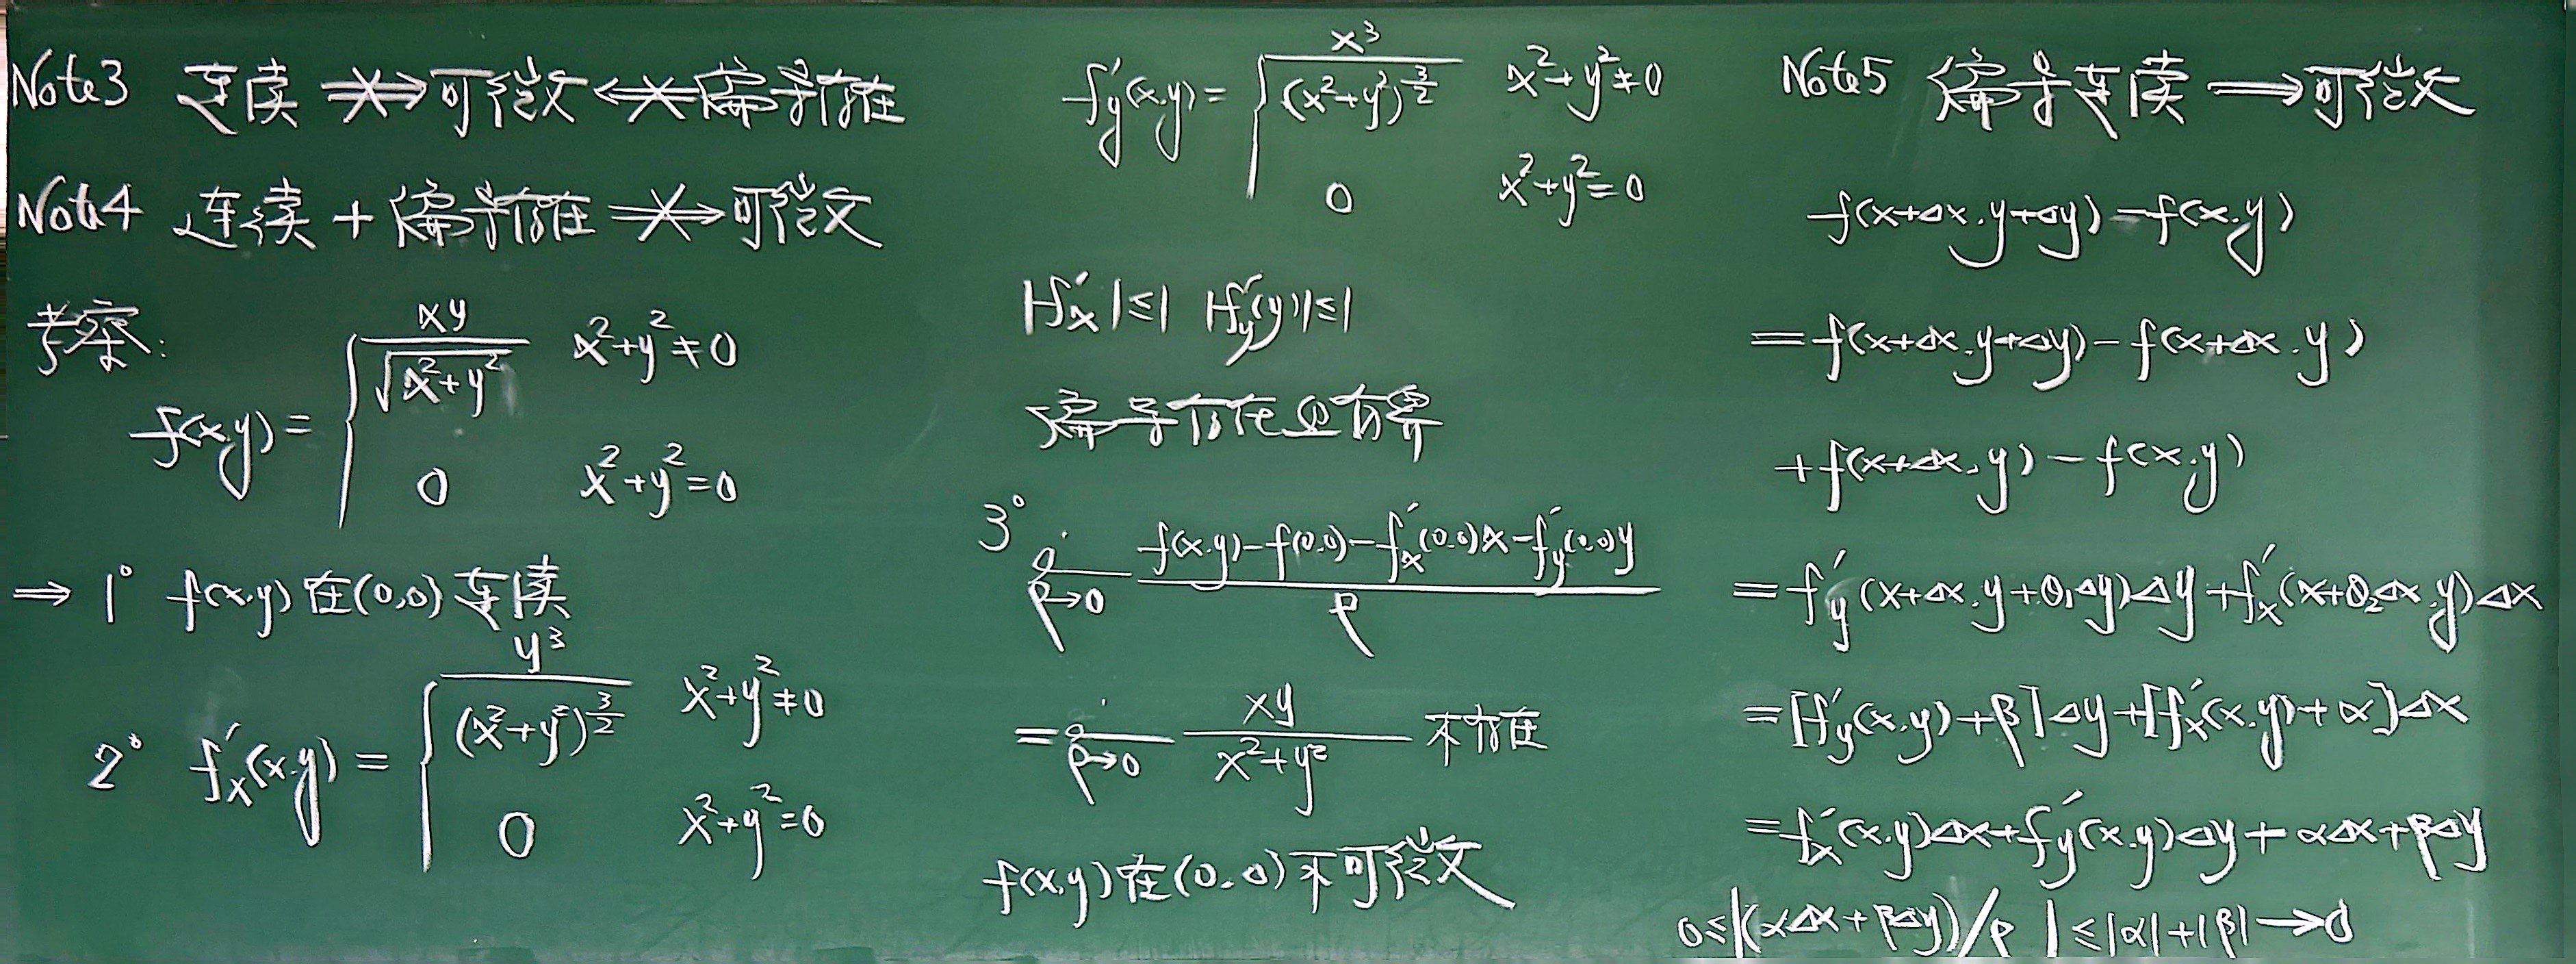 Note3 连续 ⇏ 可微 ⇍ 偏导存在
Note4 连续 + 偏导存在 ⇏ 可微
考察:
f(x,y) = { xy/√(x²+y²)  x²+y²≠0
0  x²+y²=0
⇒ 1° f(x,y)在(0,0)连续
2° f'x(x,y) = { y³/(x²+y²)^(3/2)  x²+y²≠0
0  x²+y²=0
f'y(x,y) = { x³/(x²+y²)^(3/2)  x²+y²≠0
0  x²+y²=0
|f'x|≤1 |f'y(y)|≤1
偏导存在且有界
3° lim ρ→0 (f(x,y)-f(0,0)-f'x(0,0)x-f'y(0,0)y)/ρ
= lim ρ→0 xy/(x²+y²) 不存在
f(x,y)在(0,0)不可微
Note5 偏导连续 ⟹ 可微
f(x+Δx,y+Δy)-f(x,y)
=f(x+Δx,y+Δy)-f(x+Δx,y)
+f(x+Δx,y)-f(x,y)
=f'y(x+Δx,y+θ₁Δy)Δy+f'x(x+θ₂Δx,y)Δx
=[f'y(x,y)+β]Δy+[f'x(x,y)+α]Δx
=f'x(x,y)Δx+f'y(x,y)Δy+αΔx+βΔy
0≤|(αΔx+βΔy)/ρ|≤|α|+|β|→0